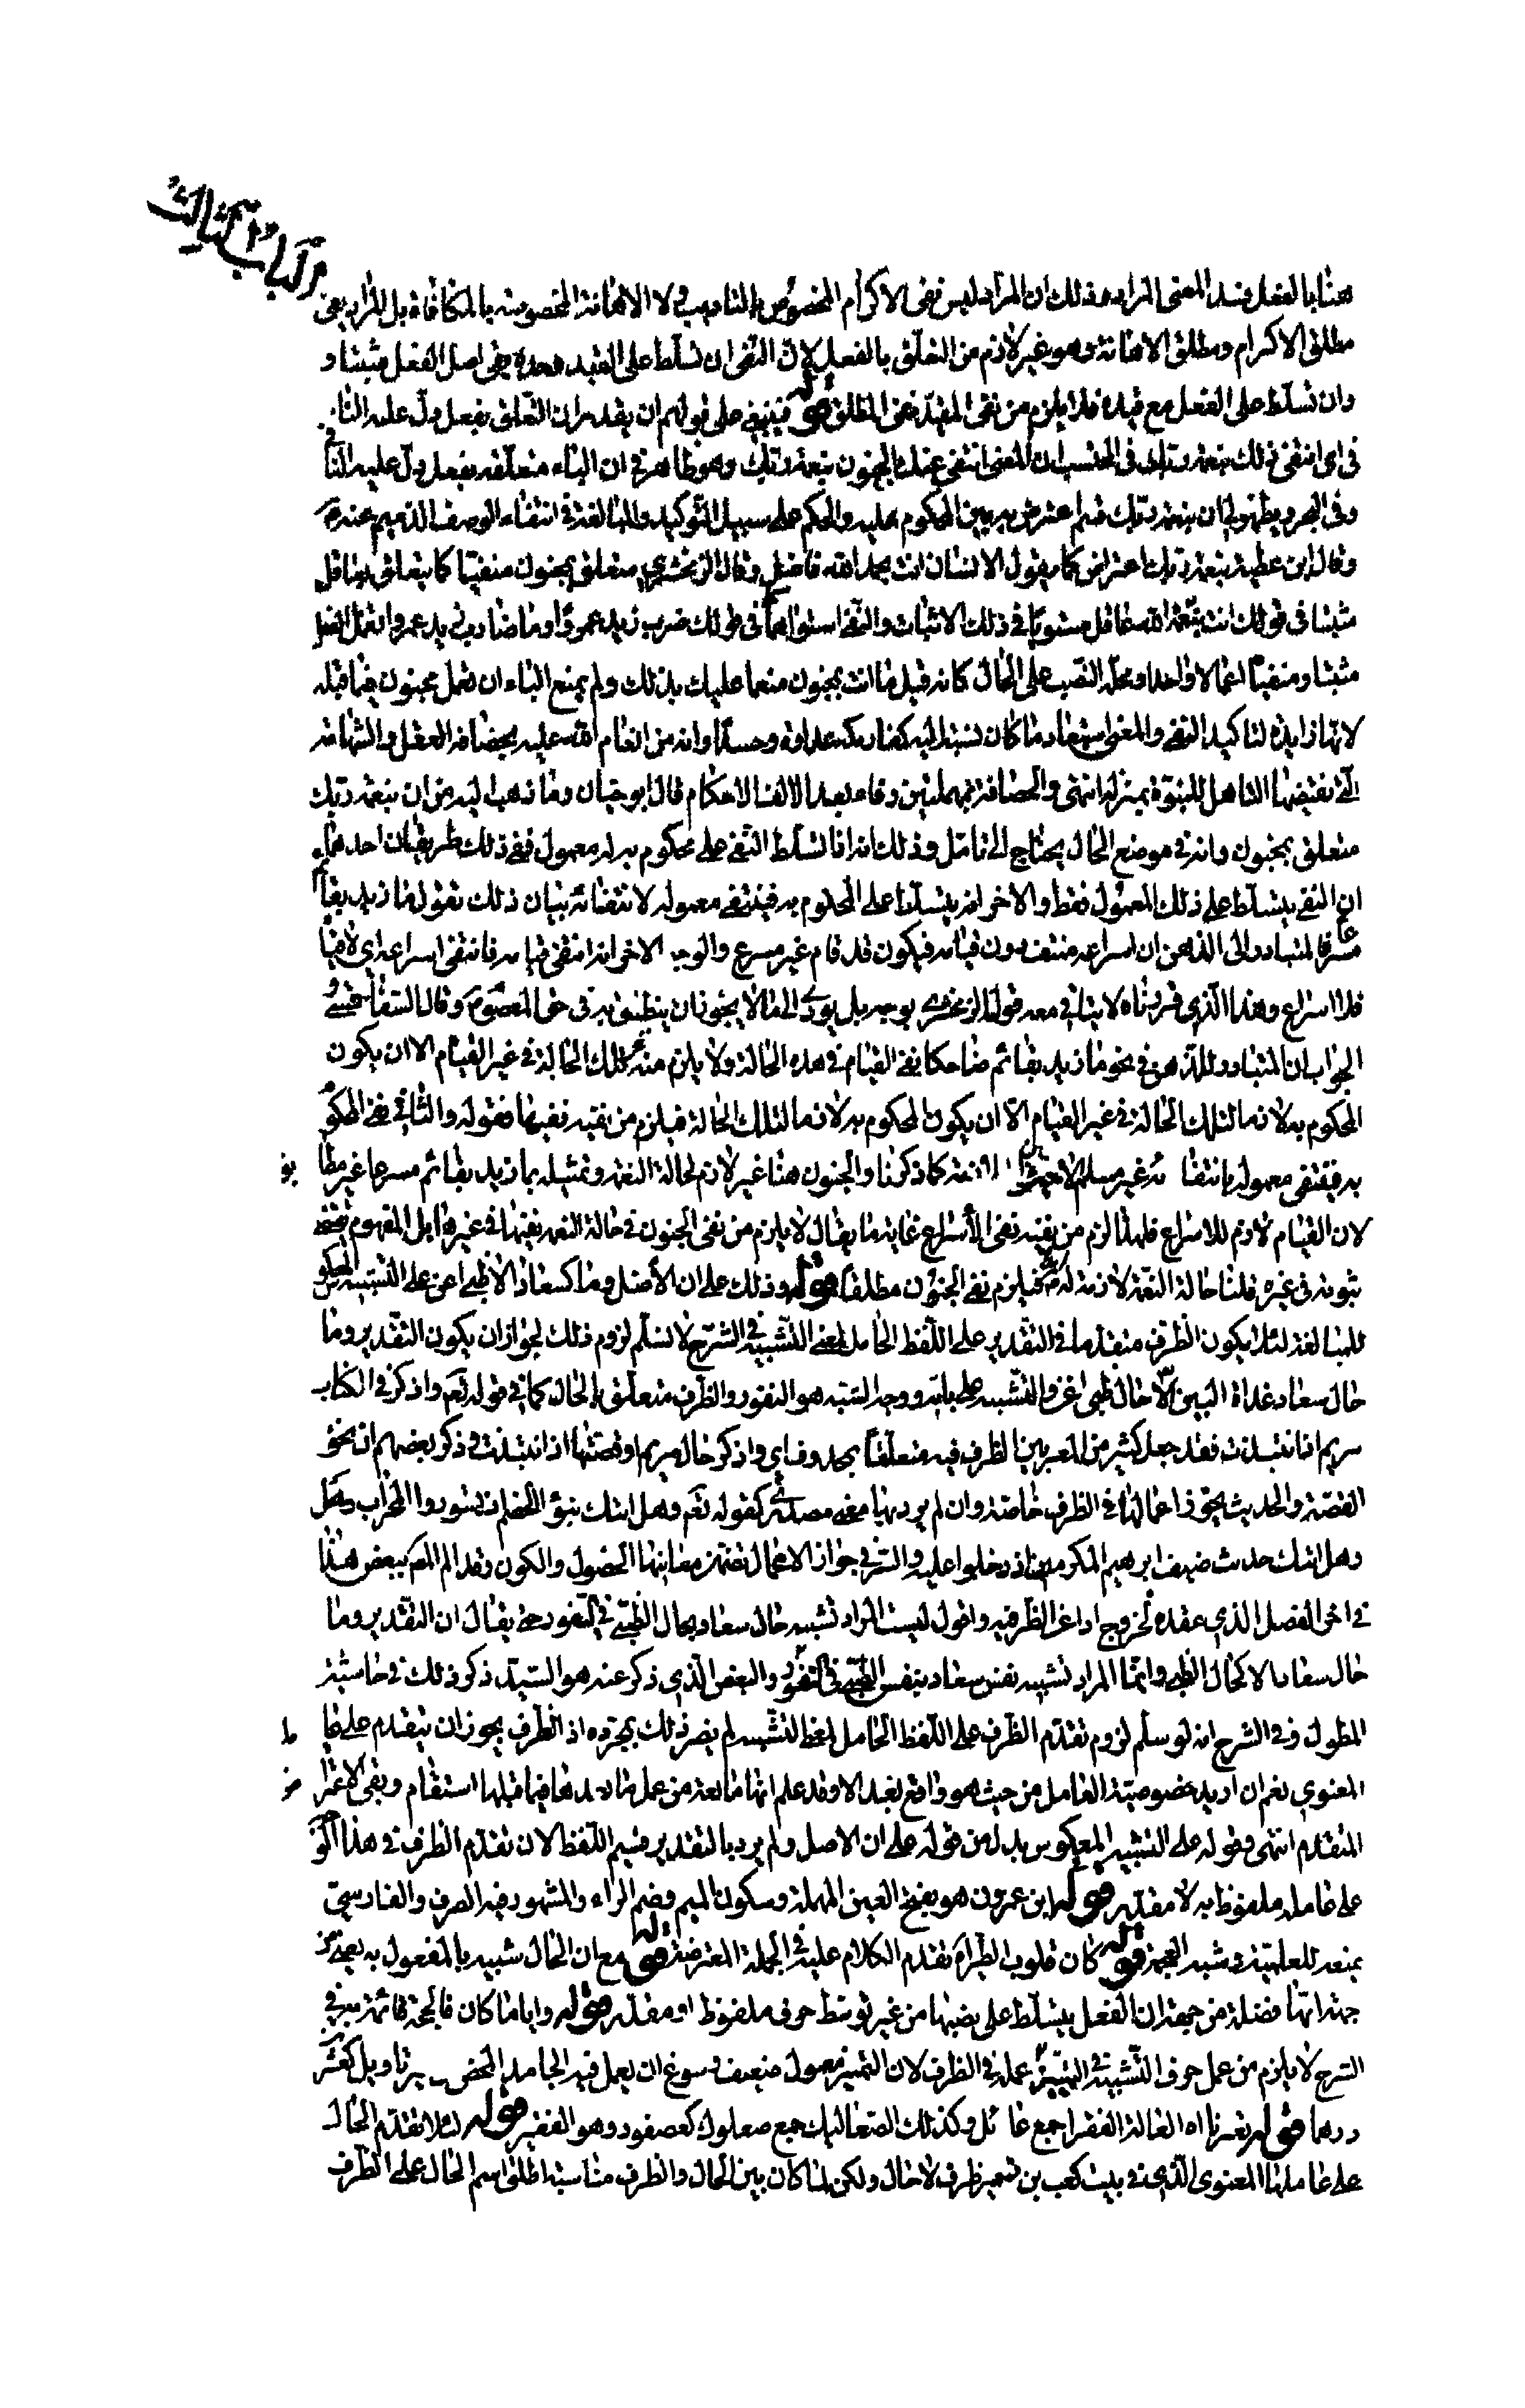 من الباب الثالث
هنا بالفعل فسد المعنى المراد وذلك ان المراد ليس نفى الاكرام المخصوص بالتاديب ولا الاهانة المخصوصة بالمكافاة بل المراد نفى
مطلق الاكرام ومطلق الاهانة وهو غير لازم من التعلق بالفعل لان النفى ان تسلط على القيد وحده بقى اصل الفعل مثبتا و
وان تسلط على الفعل مع قيده فلا يلزم من نفى المقيد نفى المطلق قوله فينبغى على قولهم ان يقدر ان التعلق بفعل دل عليه النا
فى اى انتفى ذلك بنعمة ربك فى المعنى انتفى عنك الجنون بنعمة ربك وهو ظاهر فى ان الباء متعلقة بفعل دل عليه النا
وفى البحر ويظهر لى ان بنعمة ربك قسم اعترض به بين المحكوم عليه والحكم على سبيل التوكيد والمبالغة فى انتفاء الوصف الذميم عنه
وقال ابن عطية بنعمة ربك اعتراض كما يقول الانسان انت بحمد الله فاضل وقال الزمخشرى متعلق بمجنون منفيا كما يتعلق بعاقل
مثبتا فى قولك انت بنعمة الله عاقل مستويا فى ذلك الاثبات والنفى استواءهما فى قولك ضرب زيد عمروا وما ضرب زيد عمروا تعمل الفعل
مثبتا ومنفيا اعمالا واحدا ومحله النصب على الحال كانه قيل ما انت بمجنون منعما عليك بذلك ولم يمنع الباء ان تعمل مجنون فيما قبله
لانها زايدة لتاكيد النفى والمعنى استبعاد ما كان ينسبه اليه كفار مكة عداوة وحسدا وانه من انعام الله عليه بحصافة العقل والشهامة
التى تقتضيها التاهل للنبوة بمنزلة انتهى والحصافة بمهملتين وفاء بعد الالف الاحكام قال ابو حيان وما ذهب اليه من ان بنعمة ربك
متعلق بمجنون وانه فى موضع الحال يحتاج الى تامل وذلك انه اذا تسلط النفى على محكوم به وله معمول ففى ذلك طريقان احدهما
ان النفى يتسلط على ذلك المعمول فقط والاخر انه يتسلط على المحكوم به فينتفى معموله لانتفائه بيان ذلك تقول ما زيد بقائم
مسرعا فالمتبادر الى الذهن ان اسراعه منتف دون قيامه فيكون قد قام غير مسرع والوجه الاخر انه انتفى قيامه فانتفى اسراعه اى لا قيام
فلا اسراع وهذا الذى قررناه لا يتاتى معه قول الزمخشرى بوجه بل يودى الى ما لا يجوز ان ينطق به فى حق المعصوم وقال السفاقسى
الجواب ان المتبادر للذهن فى نحو ما زيد بقائم ضاحكا نفى القيام فى هذه الحالة ولا يلزم منه تلك الحالة فى غير القيام الا ان يكون
المحكوم به لازما لتلك الحالة فى غير القيام الا ان يكون المحكوم به لازما لتلك الحالة فيلزم من نفيه نفيها فقوله والثانى نفى المحكوم
به فينتفى معموله بانتفائه غير مسلم الا حيث كما ذكرنا والجنون هنا غير لازم لحالة النعمة وتمثيله بما زيد بقائم مسرعا غير مطا بق
لان القيام لازم للاسراع فلهذا لزم من نفيه نفى الاسراع غاية ما يقال لا يلزم من نفى الجنون فى حالة النعمة نفيها فى غيرها بل المفهوم يقتضى
ثبوته فى غيره قلنا حالة النعمة لازمة له فيلزم نفى الجنون مطلقا قوله وذلك على ان الاصل وما كسعاد الا ظبى اغن على التشبيه المعكوس
للمبالغة لئلا يكون الظرف متقدما فى التقدير على اللفظ الحامل لمعنى التشبيه فى الشرح لا نسلم لزوم ذلك لجواز ان يكون التقدير وما
حال سعاد غداة البين الا حال ظبى اغن والتشبيه على بابه ووجه الشبه هو النفور والظرف متعلق بالحال كما فى قوله تعم واذكر فى الكتاب
مريم اذ انتبذت فقد جعل كثير من المعربين الظرف فيه متعلقا بمحذوف اى واذكر حال مريم او قصتها اذ انتبذت وذكر بعضهم ان نحو
القصة والحديث يجوز اعمالها فى الظرف خاصة وان لم يرد بها معنى مصدرى كقوله تعم وهل اتيك نبؤ الخصم اذ تسوروا المحراب
وهل اتيك حديث ضيف ابرهيم المكرمين اذ دخلوا عليه والسر فى جواز الاعمال تضمن معانيها الحصول والكون وقد الم المص ببعض هذا
فى اخر الفصل الذى عقده لخروج اذا عن الظرفية واقول ليست المراد تشبيه حال سعاد بحال الظبى فى النفور حتى يقال ان التقدير وما
حال سعاد الا كحال الظبى وانما المراد تشبيه نفس سعاد بنفس الظبى فى النفور والبعض الذى ذكر عنه هو السيد ذكر ذلك فى حاشية
المطول وفى الشرح انه لو سلم لزوم تقدم الظرف على اللفظ الحامل لمعنى التشبيه لم يضر ذلك بمجرده اذ الظرف يجوز ان يتقدم على عا مله
المعنوى نعم ان اريد خصوصية العامل من حيث هو واقع بعد الا وقد علم انها مانعة من عمل ما بعدها فيما قبلها استقام وبقى الاعترا ض
المتقدم انتهى وقوله على التشبيه المعكوس بدل من قوله على ان الاصل ولم يرد بالتقدير قسيم اللفظ لان تقدم الظرف فى هذا انما هو
على عامله ملفوظ به لا مقدر قوله ابن عمرون هو بفتح العين المهملة وسكون الميم وضم الراء والمشهور فيه الصرف والفارسى
يمنعه للعلمية وشبه العجمة قوله كان قلوب الطير اه تقدم الكلام عليه فى الجملة المعترضة قوله مع ان الحال شبيه بالمفعول به يعنى من
جهة انها فضلة من جهة ان الفعل يتسلط على نصبها من غير توسط حرف ملفوظ او مقدر قوله واياما كان فالحجة قائمة به فى
الشرح لا يلزم من عمل حرف التشبيه فى التمييز عمله فى الظرف لان التمييز معمول ضعيف وسوغ ان يعمل فيه الجامد المحض بغير تاويل كعشر
درهما قوله تعيرنا اه العالة الفقراء جمع عائل وكذلك الصعاليك جمع صعلوك كعصفور وهو الفقير قوله لئلا تقدم الحال
على عاملها المعنوى الذى فى بيت كعب بن زهير ظرف لا حال ولكن لما كان بين الحال والظرف مناسبة اطلق اسم الحال على الظرف